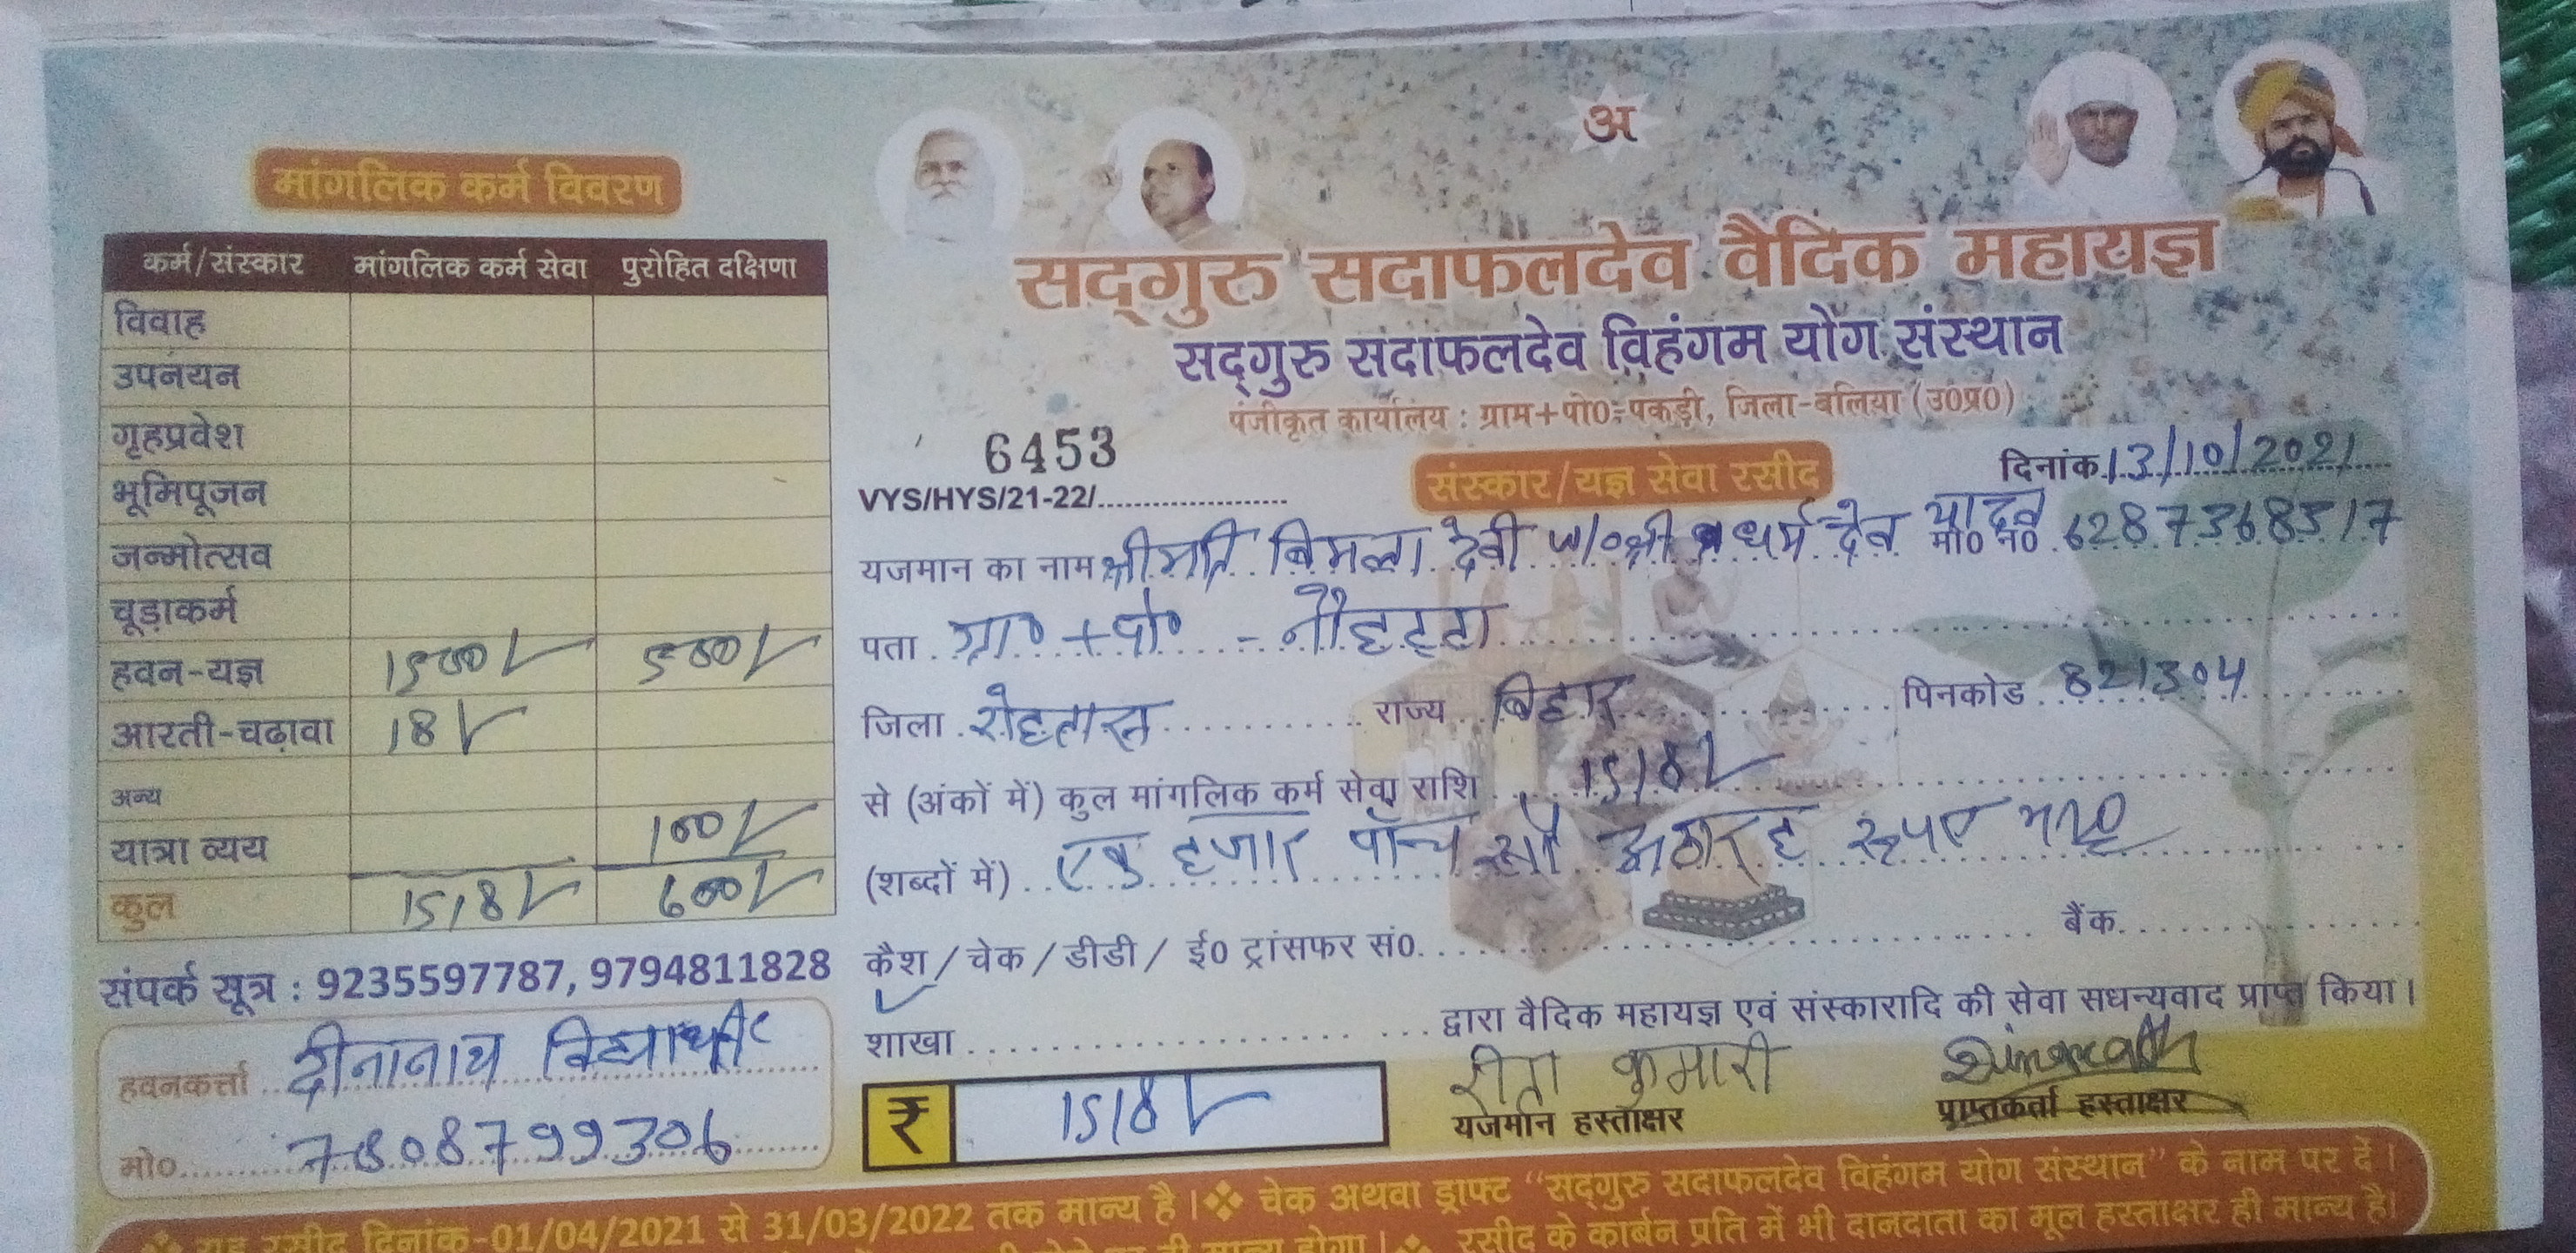 मांगलिक कर्म विवरण
कर्म/संस्कार मांगलिक कर्म सेवा पुरोहित दक्षिणा
विवाह
उपनयन
गृहप्रवेश
भूमिपूजन
जन्मोत्सव
चूड़ाकर्म
हवन-यज्ञ 1500/- 500/-
आरती-चढ़ावा 18/-
अन्य
यात्रा व्यय 100/-
कुल 1518/- 600/-
संपर्क सूत्र : 9235597787, 9794811828
हवनकर्त्ता दीनानाथ विद्यार्थी
मो० 7808799306
अ
सद्गुरु सदाफलदेव वैदिक महायज्ञ
सद्गुरु सदाफलदेव विहंगम योग संस्थान
पंजीकृत कार्यालय : ग्राम+पो०-पकड़ी, जिला-बलिया (उ०प्र०)
6453
VYS/HYS/21-22/
संस्कार/यज्ञ सेवा रसीद
दिनांक 13/10/2021
यजमान का नाम श्रीमति बिमला देवी w/o श्री धर्म देव यादव मो० नं० 6287368517
पता ग्रा० + पो० - नौहट्टा
जिला रोहतास राज्य बिहार पिनकोड 821304
से (अंकों में) कुल मांगलिक कर्म सेवा राशि 1518/-
(शब्दों में) एक हजार पाँच सौ अठारह रूपए मात्र
कैश / चेक / डीडी / ई० ट्रांसफर सं० बैंक
शाखा द्वारा वैदिक महायज्ञ एवं संस्कारादि की सेवा सधन्यवाद प्राप्त किया।
₹ 1518/-
रीता कुमारी Dinanath
यजमान हस्ताक्षर प्राप्तकर्ता हस्ताक्षर
❖ यह रसीद दिनांक-01/04/2021 से 31/03/2022 तक मान्य है। ❖ चेक अथवा ड्राफ्ट "सद्गुरु सदाफलदेव विहंगम योग संस्थान" के नाम पर दें।
❖ रसीद के कार्बन प्रति में भी दानदाता का मूल हस्ताक्षर ही मान्य है।